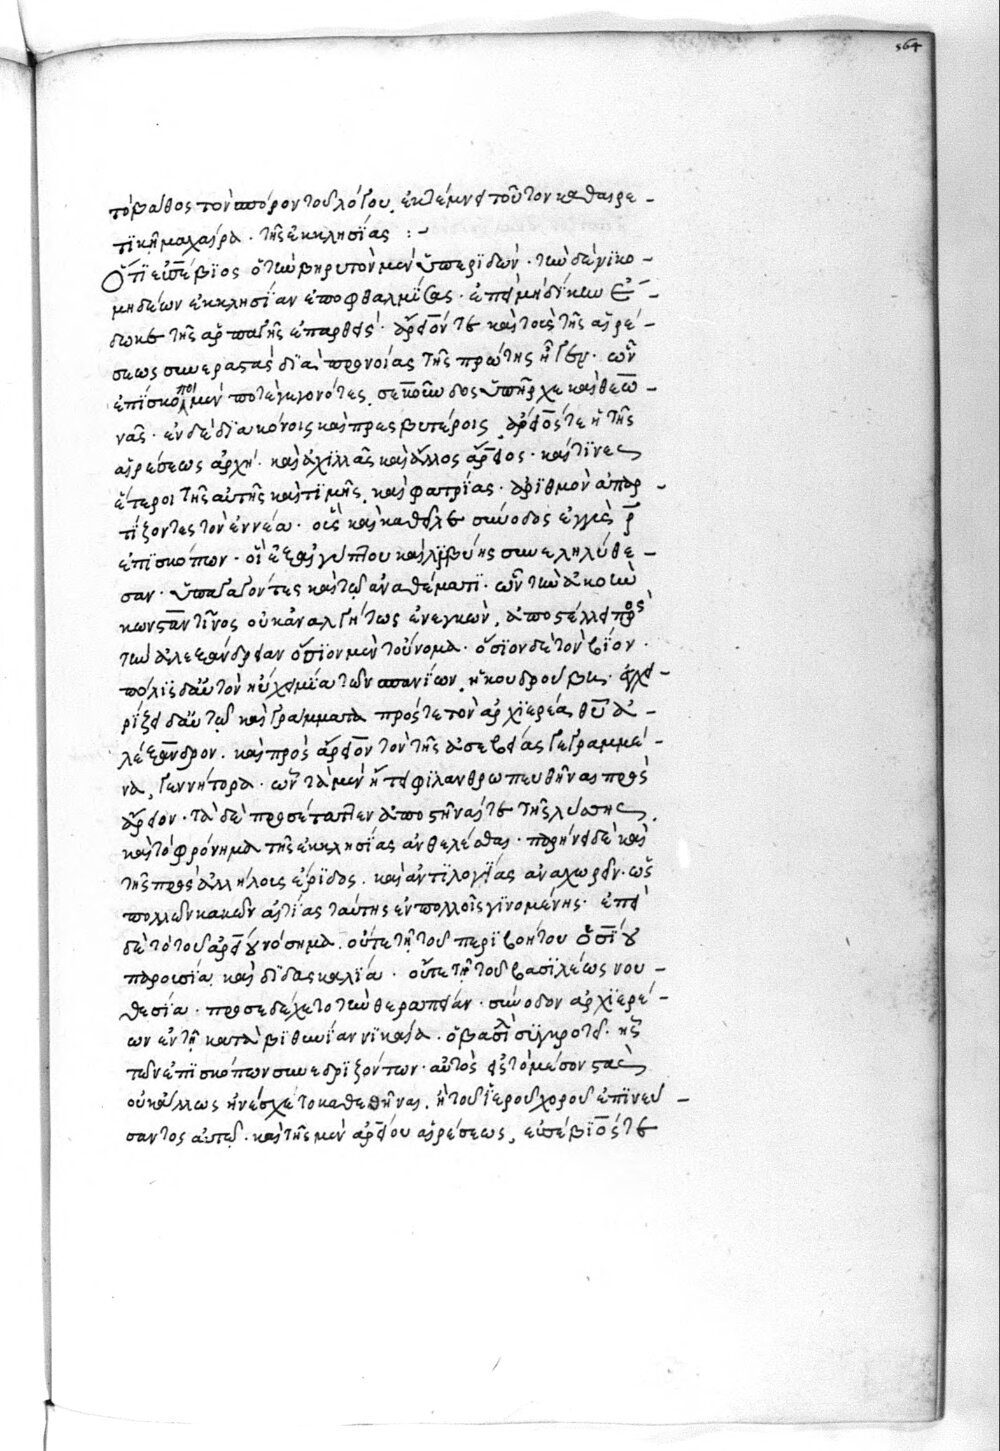 564
τὸ βάθος τὸν ἄπορον τοῦ λόγου, ἐκτέμνει τοῦτον καθαιρε -
τικῆ μαχαίρα · τῆς ἐκκλησίας : ~
Ὅτι εὐσέβιος ὁ τὼ βηρυτὸν μὲν ὑπεριδών · τὼ δὲ νίκο -
μηδέων ἐκκλησίαν ἐποφθαλμίσας · ἐπει μηδίκω
δωκε τῆς ἁρπαγῆς ἐπαρθεὶς · ἄρειόν τε καὶ τοῖς τῆς αἱρέ -
σεως συνερασταὶς διὰ προνοίας τῆς πρώτης ἦγεν · ὧν
ἐπίσκοποι μέν ποτε γεγονότες, σεκοῦνδος ὑπῆρχε καὶ θεω -
νᾶς · ἐν δὲ διακόνοις καὶ πρεσβυτέροις, ἄρειός τε ἡ τῆς
αἱρέσεως ἀρχή · καὶ ἀχιλλᾶς καὶ ἄλλος ἄρειος · καί τινες
ἕτεροι τῆς αὐτῆς καὶ τιμῆς, καὶ φατρίας · ἀριθμὸν ἀπαρ -
τίζοντες τὸν ἐννέα · οἷς καὶ καθεῖλε σύνοδος ἐγγὺς ρ
ἐπισκόπων · οἳ ἐξ αἰγύπτου καὶ λιβύης συνεληλύθε -
σαν · ὑπαγαγόντες καὶ τῷ ἀναθέματι · ὧν τὼ ἀκοὼ
κωνσταντῖνος οὐκ ἀναλγήτως ἐνεγκών, ἀποστέλλει πρὸς
τὼ ἀλεξάνδρειαν ὅσιον μὲν τοὔνομα · ὅσιον δὲ τὸν βίον ·
πόλις δ' αὐτὸν ηὔχει μία τῶν ἱσπανίων, ἡ κουδρούβις · ἐγχει -
ρίζει δ' αὐτῷ καὶ γράμματα πρός τε τὸν ἀρχιερέα θυ ἀ -
λέξανδρον · καὶ πρὸς ἄρειον τὸν τῆς ἀσεβείας γεγραμμέ -
να, γεννήτορα · ὧν τὰ μὲν ᾔτει φιλανθρωπευθῆναι πρὸς
ἄρειον · τὰ δὲ προσέταττεν ἀποστῆναί τε τῆς λύσσης,
καὶ τὸ φρόνημα τῆς ἐκκλησίας ἀνθελέσθαι · παρήνει δὲ καὶ
τῆς πρὸς ἀλλήλους ἔριδος, καὶ ἀντιλογίας ἀναχωρεῖν · ὡς
πολλῶν κακῶν αἰτίας ταύτης ἐν πολλοῖς γινομένης · ἐπεὶ
δὲ τὸ τοῦ ἀρείου νόσημα, οὔτε τῇ τοῦ περιβοήτου ὁσίου
παρουσία καὶ διδασκαλία · οὔτε τῇ τοῦ βασιλέως νου -
θεσία · προσεδέχετο τὼ θεραπείαν · σύνοδον ἀρχιερέ -
ων ἐν τῇ κατὰ βιθυνίαν νικαία · ὁ βασιλεὺς συγκροτεῖ · ἧς
τῶν ἐπισκόπων συνεδριζόντων · αὐτὸς εἰς τὸ μέσον στὰς
οὐκ ἄλλως ἠνέσχετο καθεσθῆναι, ἢ τοῦ ἱεροῦ χοροῦ ἐπινεύ -
σαντος αὐτῷ · καὶ τῆς μὲν ἀρείου αἱρέσεως, εὐσέβιός τε